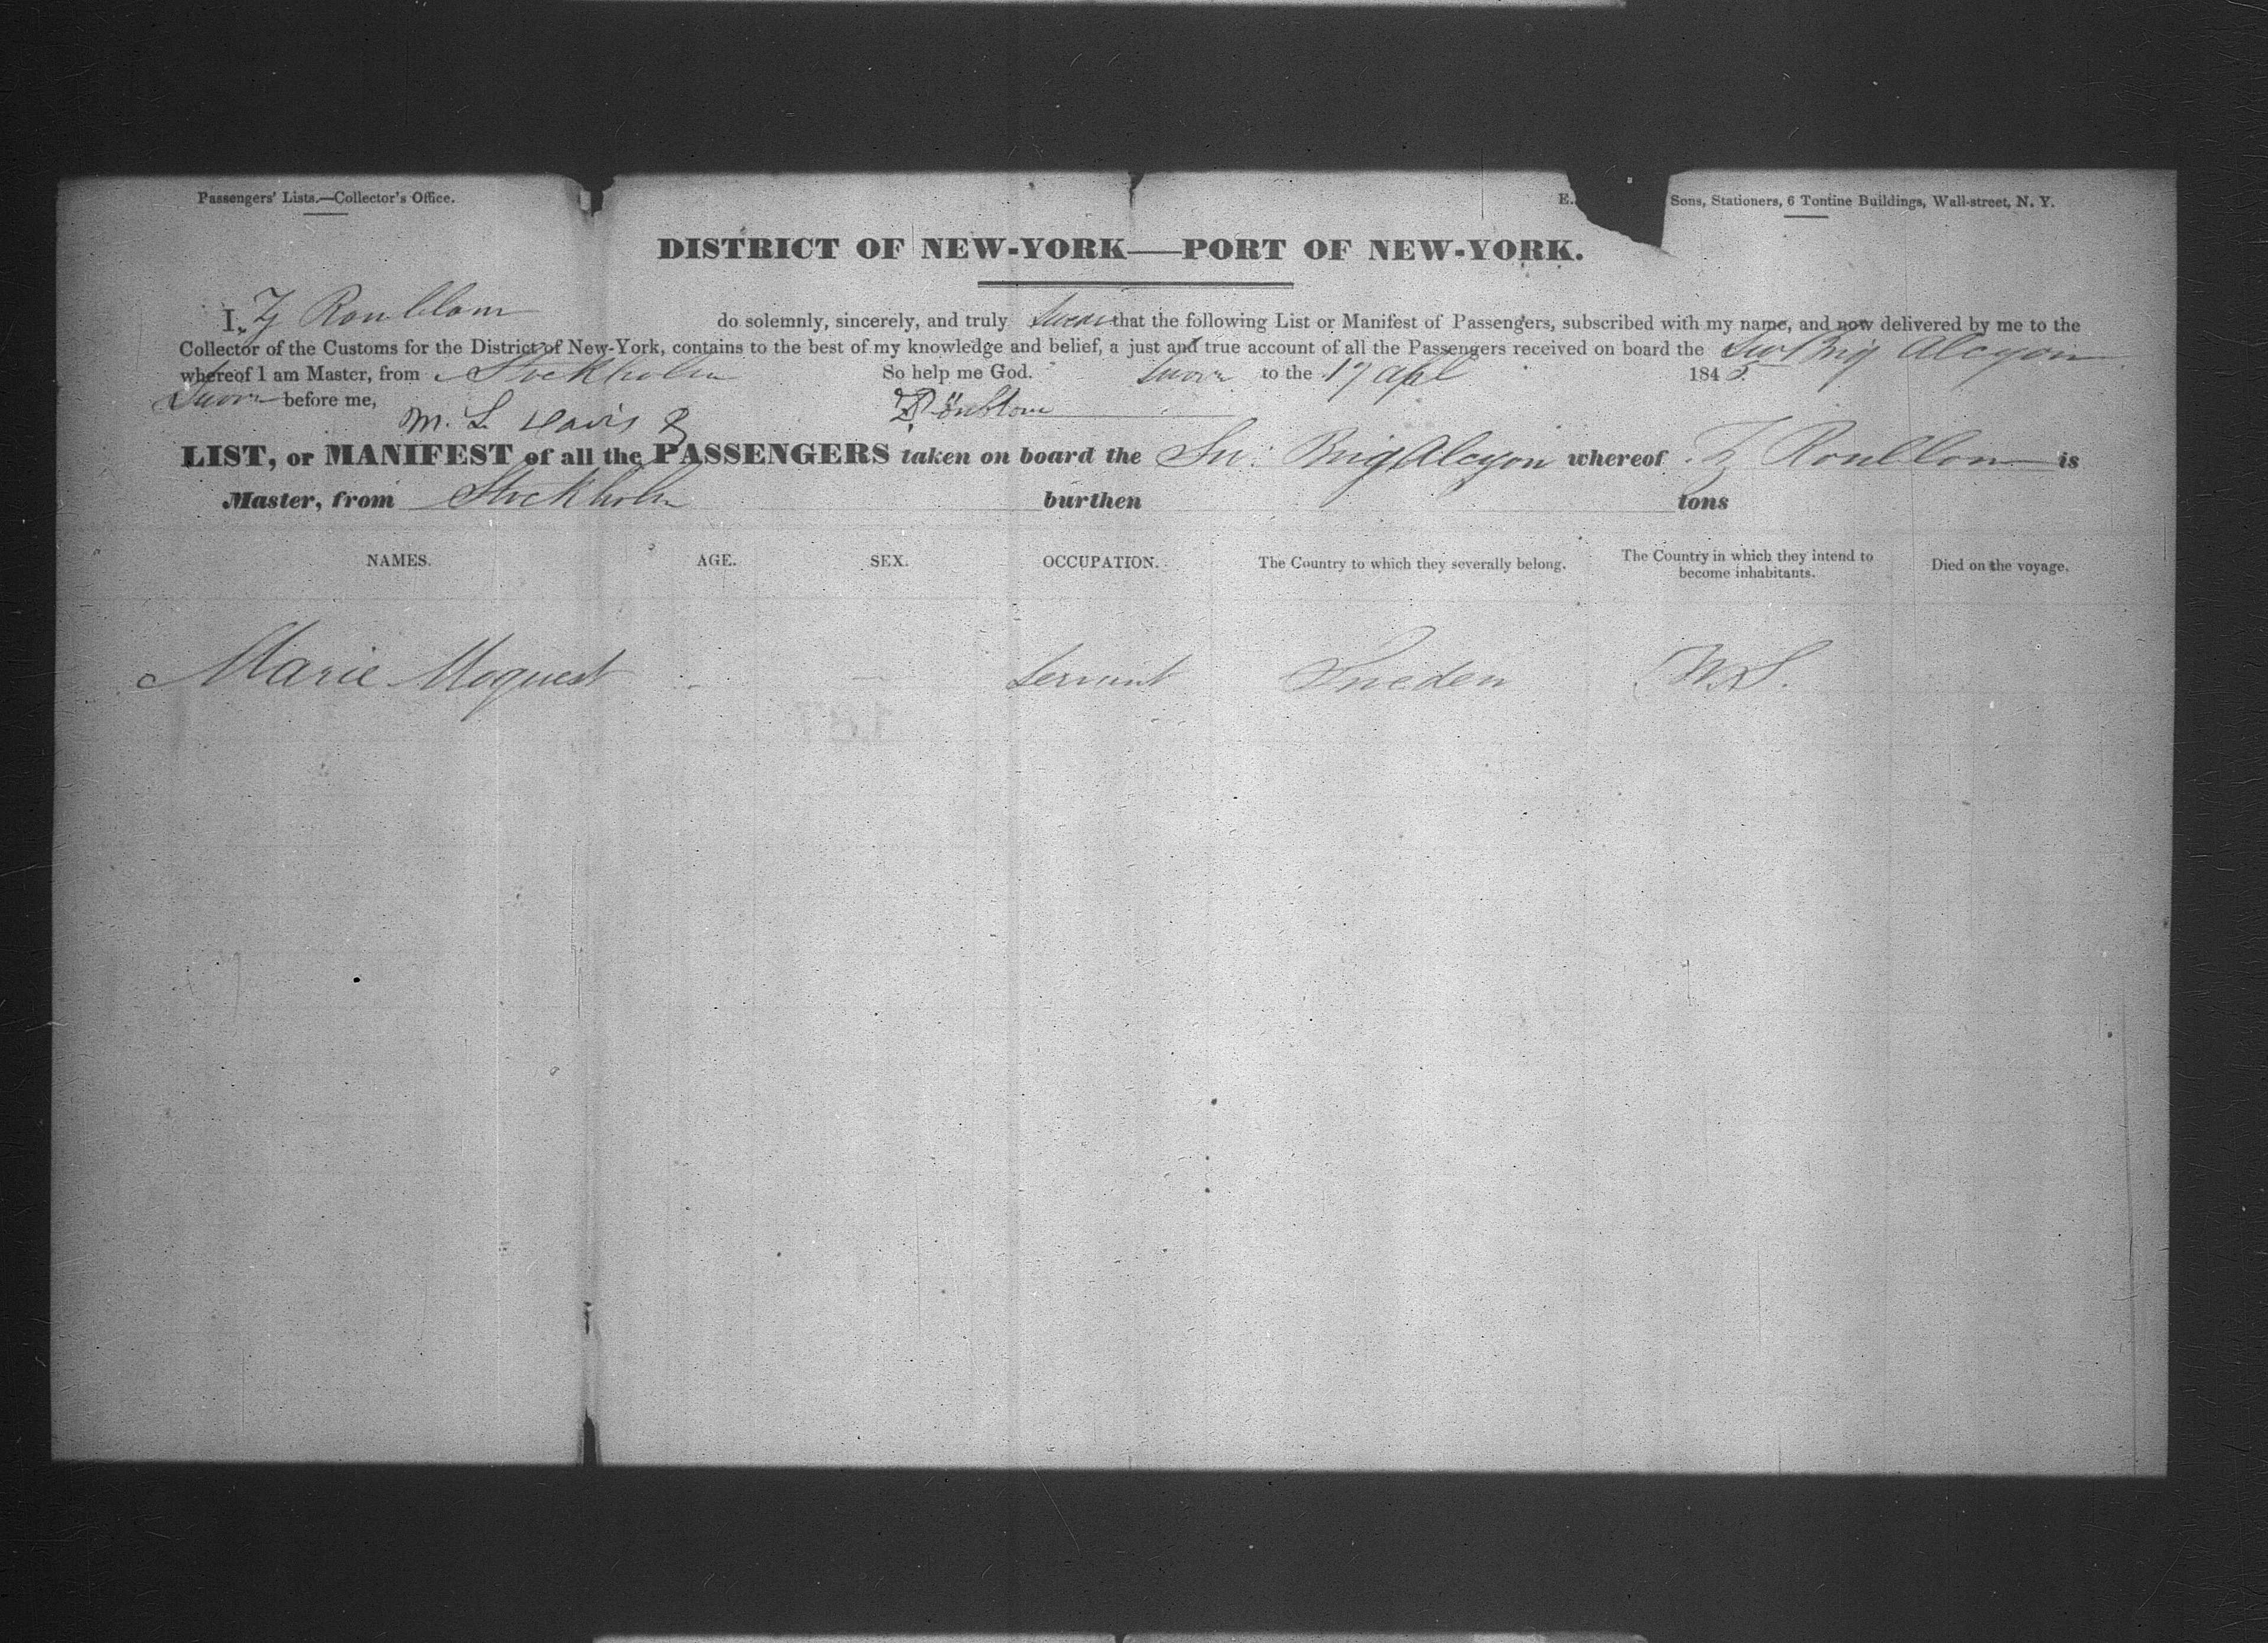 Passengers' Lists.—Collector's Office.
E. Sons, Stationers, 6 Tontine Buildings, Wall-street, N. Y.
DISTRICT OF NEW-YORK—PORT OF NEW-YORK.
I, Z Ronblom do solemnly, sincerely, and truly Swear that the following List or Manifest of Passengers, subscribed with my name, and now delivered by me to the
Collector of the Customs for the District of New-York, contains to the best of my knowledge and belief, a just and true account of all the Passengers received on board the Sw Brig Alcyon
whereof I am Master, from Stockholm So help me God. Sworn to the 17 Apl 1845
Sworn before me,
M. L. Davis Rönblom
LIST, or MANIFEST of all the PASSENGERS taken on board the Sw: Brig Alcyon whereof Z Ronblom is
Master, from Stockholm burthen tons
NAMES. AGE. SEX. OCCUPATION. The Country to which they severally belong. The Country in which they intend to become inhabitants. Died on the voyage.
Marie Moquest Servant Sweden U.S.